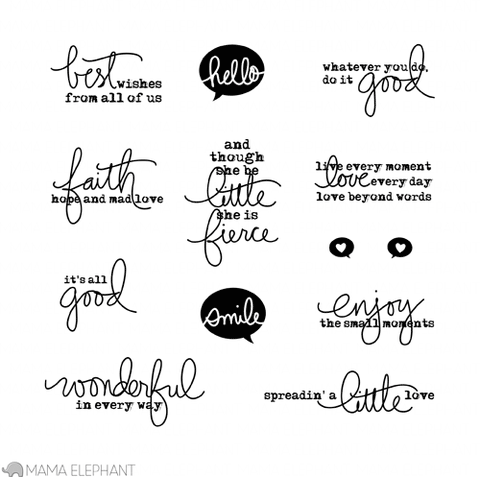 best wishes
from all of us
hello
whatever you do,
do it good
faith
hope and mad love
and
though
she be
little
she is
fierce
live every moment
love every day
love beyond words
it's all
good
smile
enjoy
the small moments
wonderful
in every way
spreadin' a little love
MAMA ELEPHANT